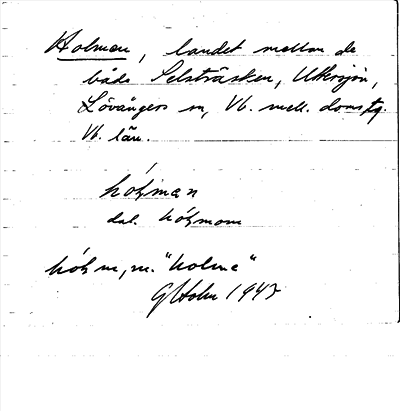 Holman, landet mellan de
båda Selsträsken, Utersjön,
Lövångers sn, Vb. mell. domstg
Vb. län.
hóḷman
dat. hóḷmom
hóḷm, m. "holme"
G Holm 1943